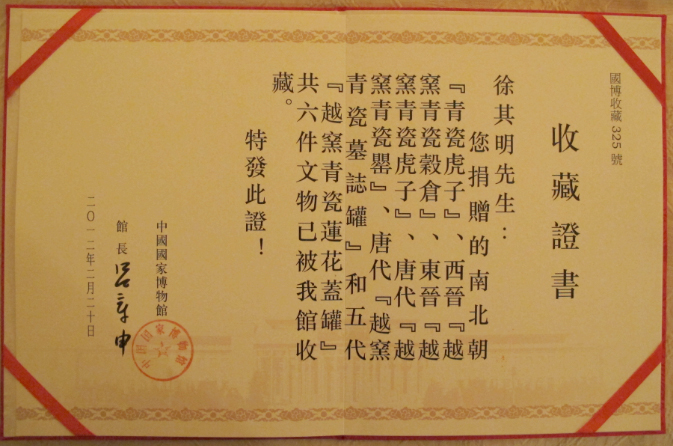 國博收藏325號
收藏證書
徐其明先生：
您捐贈的南北朝
『青瓷虎子』、西晉『越
窯青瓷穀倉』、東晉『越
窯青瓷虎子』、唐代『越
窯青瓷罌』、唐代『越窯
青瓷墓誌罐』和五代
『越窯青瓷蓮花蓋罐』
共六件文物已被我館收
藏。
特發此證！
中國國家博物館
館長 呂章申
二〇一二年二月二十日
中国国家博物馆